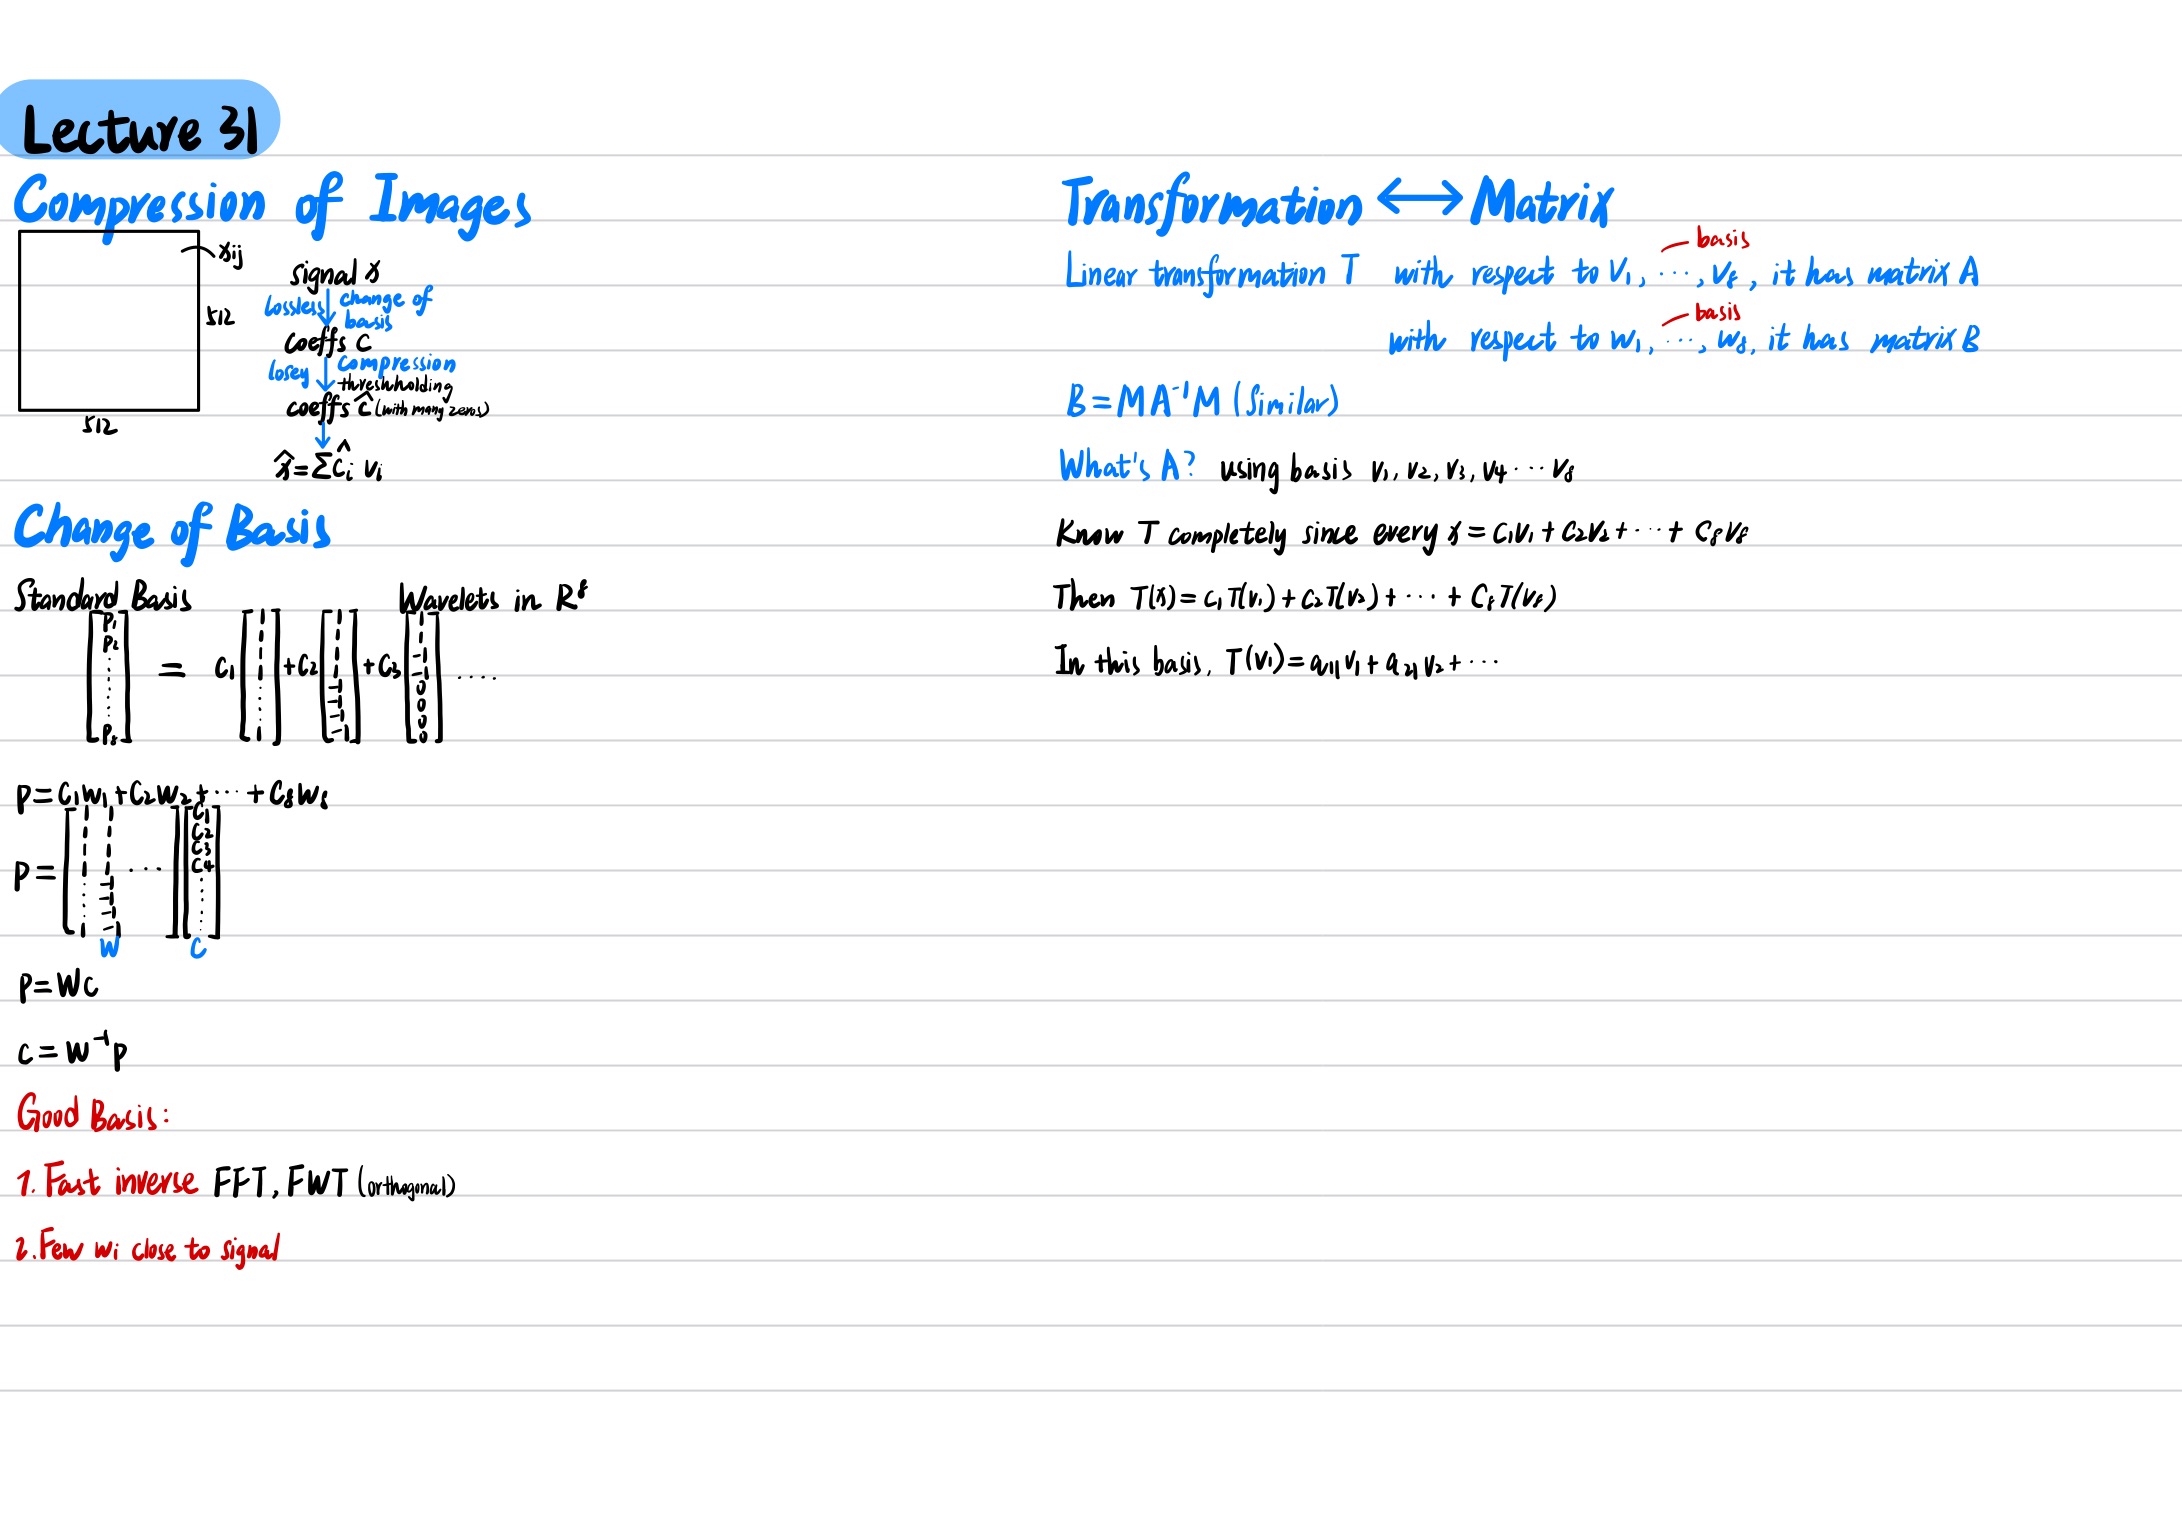 Lecture 31
Compression of Images
xij
512
512
signal x
lossless change of basis
coeffs c
losey compression
threshholding
coeffs ĉ (with many zeros)
x̂ = Σ ĉi vi
Change of Basis
Standard Basis Wavelets in R⁸
[p1 p2 ⋮ p8] = c1 [1 1 1 1 ⋮ 1] + c2 [1 1 1 1 -1 -1 -1 -1] + c3 [1 1 -1 -1 0 0 0 0] ....
p = c1w1 + c2w2 + ··· + c8w8
p = [1 1 1 1 ⋮ 1 1 1 1 1 -1 -1 -1 -1 ···] [c1 c2 c3 c4 ⋮]
W C
p = Wc
c = W⁻¹p
Good Basis:
1. Fast inverse FFT, FWT (orthogonal)
2. Few wi close to signal
Transformation ⟷ Matrix
basis
Linear transformation T with respect to v1, ···, v8, it has matrix A
basis
with respect to w1, ···, w8, it has matrix B
B = MA⁻¹M (similar)
What's A? using basis v1, v2, v3, v4 ··· v8
Know T completely since every x = c1v1 + c2v2 + ··· + c8v8
Then T(x) = c1T(v1) + c2T(v2) + ··· + c8T(v8)
In this basis, T(v1) = a11v1 + a21v2 + ···